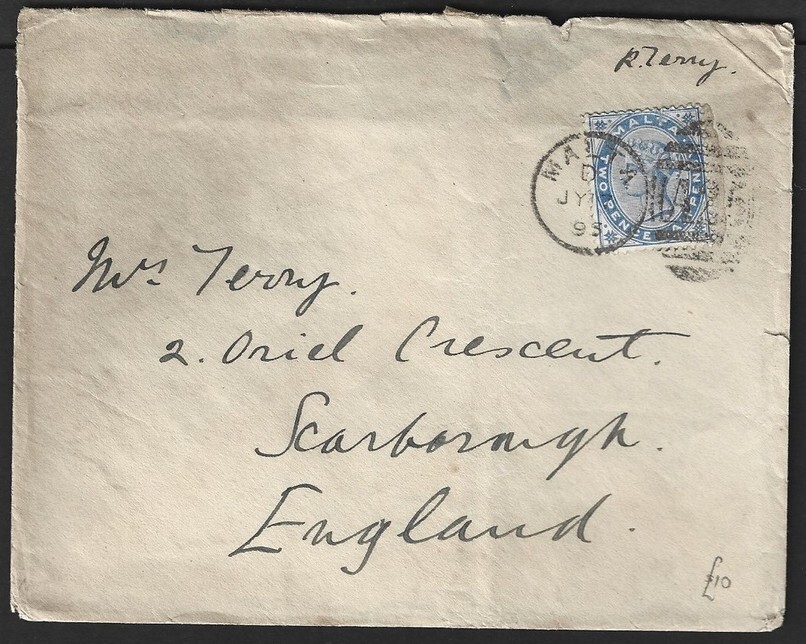 R. Terry.
MALTA
TWO PENCE HALFPENNY
MALTA
D
JY
95
Mrs Terry.
2. Oriel Crescent.
Scarborough.
England.
£10